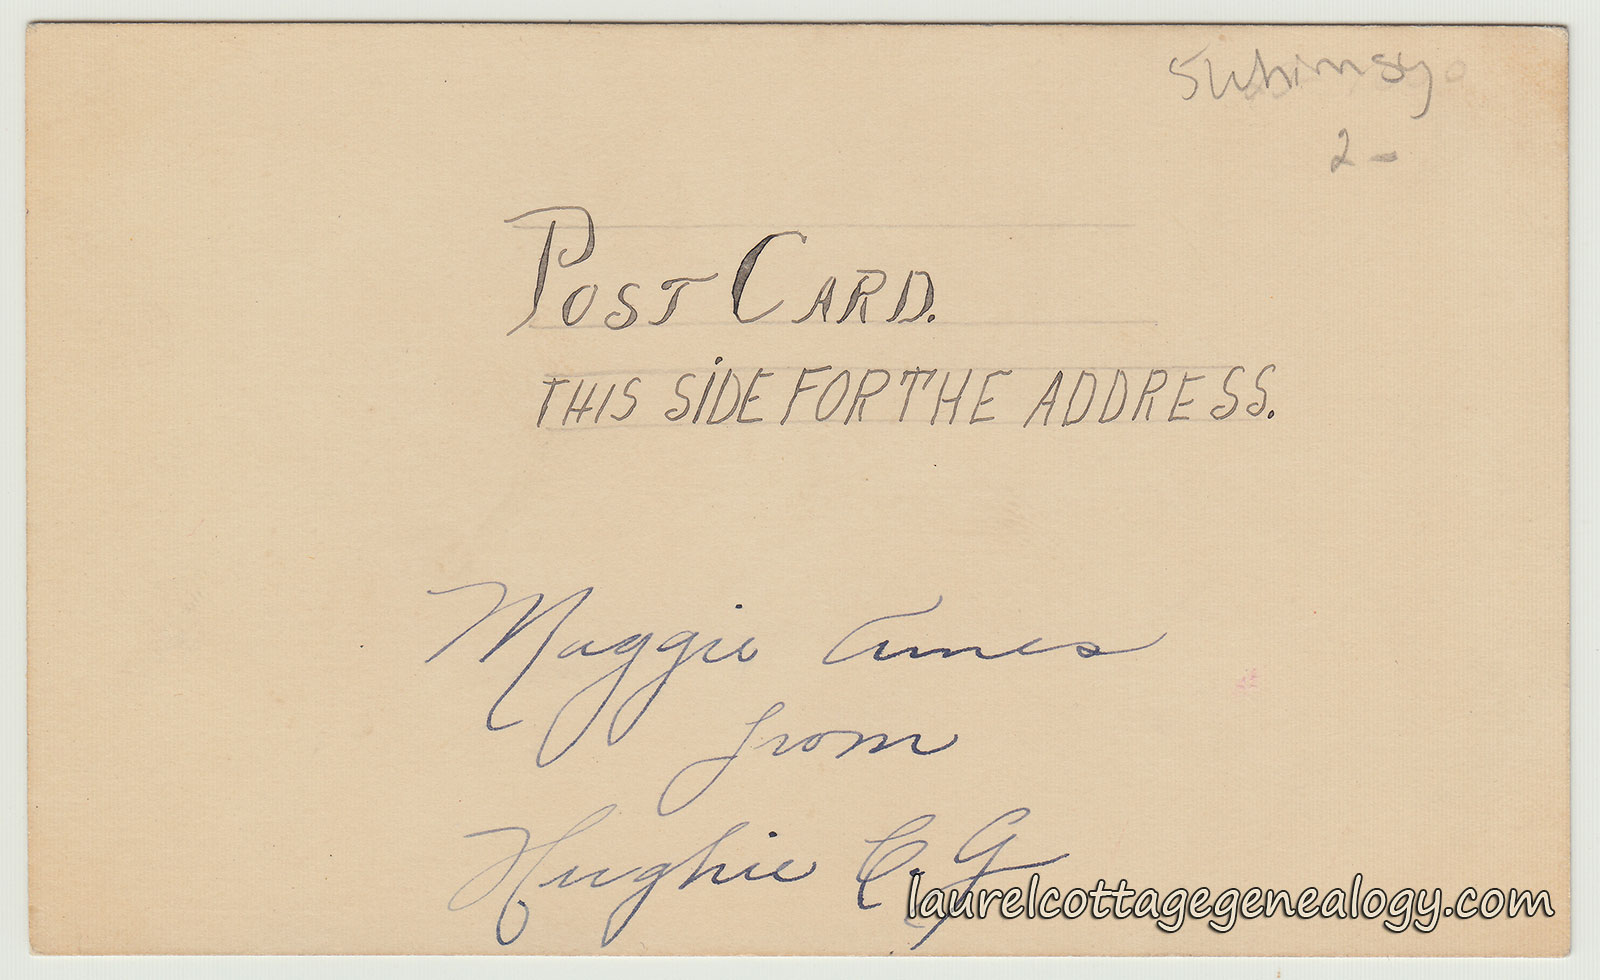 5 Whimsy
2 -
POST CARD.
THIS SIDE FOR THE ADDRESS.
Maggie Ames
from
Hughie C. G
laurelcottagegenealogy.com